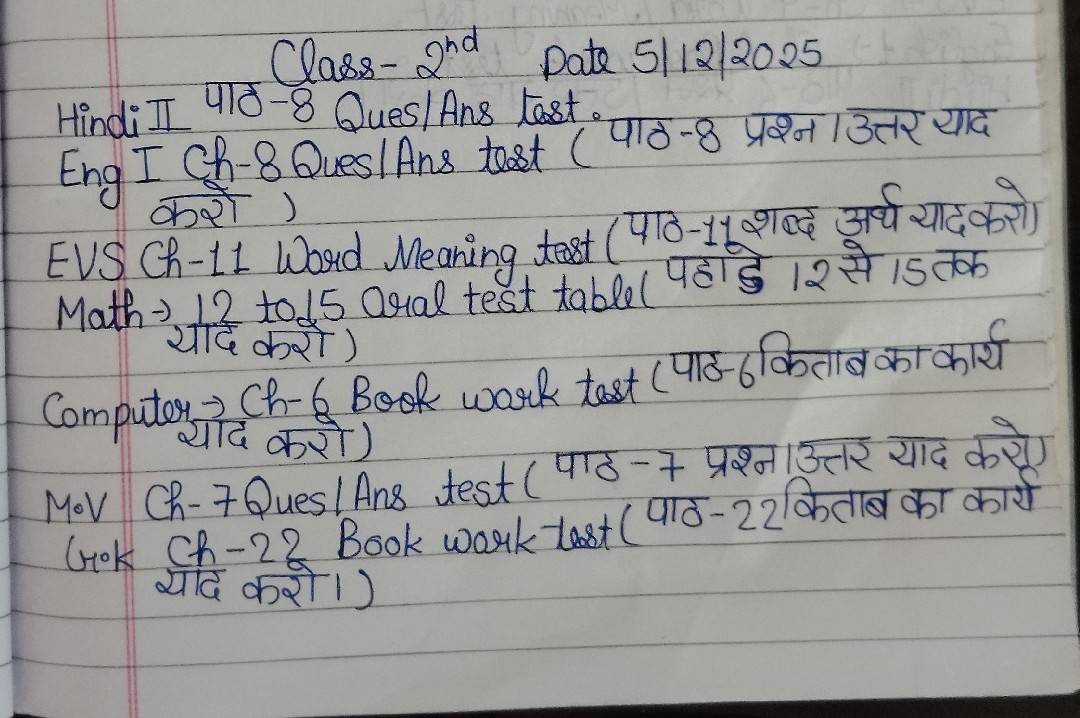 Class - 2nd Date 5/12/2025
Hindi II पाठ-8 Ques/Ans test.
Eng I Ch-8 Ques/Ans test ( पाठ-8 प्रश्न/उत्तर याद
करो )
EVS Ch-11 Word Meaning test ( पाठ-11 शब्द अर्थ याद करो)
Math → 12 to 15 Oral test table ( पहाड़े 12 से 15 तक
याद करो )
Computer → Ch-6 Book work test ( पाठ-6 किताब का कार्य
याद करो )
M.V Ch-7 Ques/Ans test ( पाठ-7 प्रश्न/उत्तर याद करो)
G.K Ch-22 Book work test ( पाठ-22 किताब का कार्य
याद करो। )